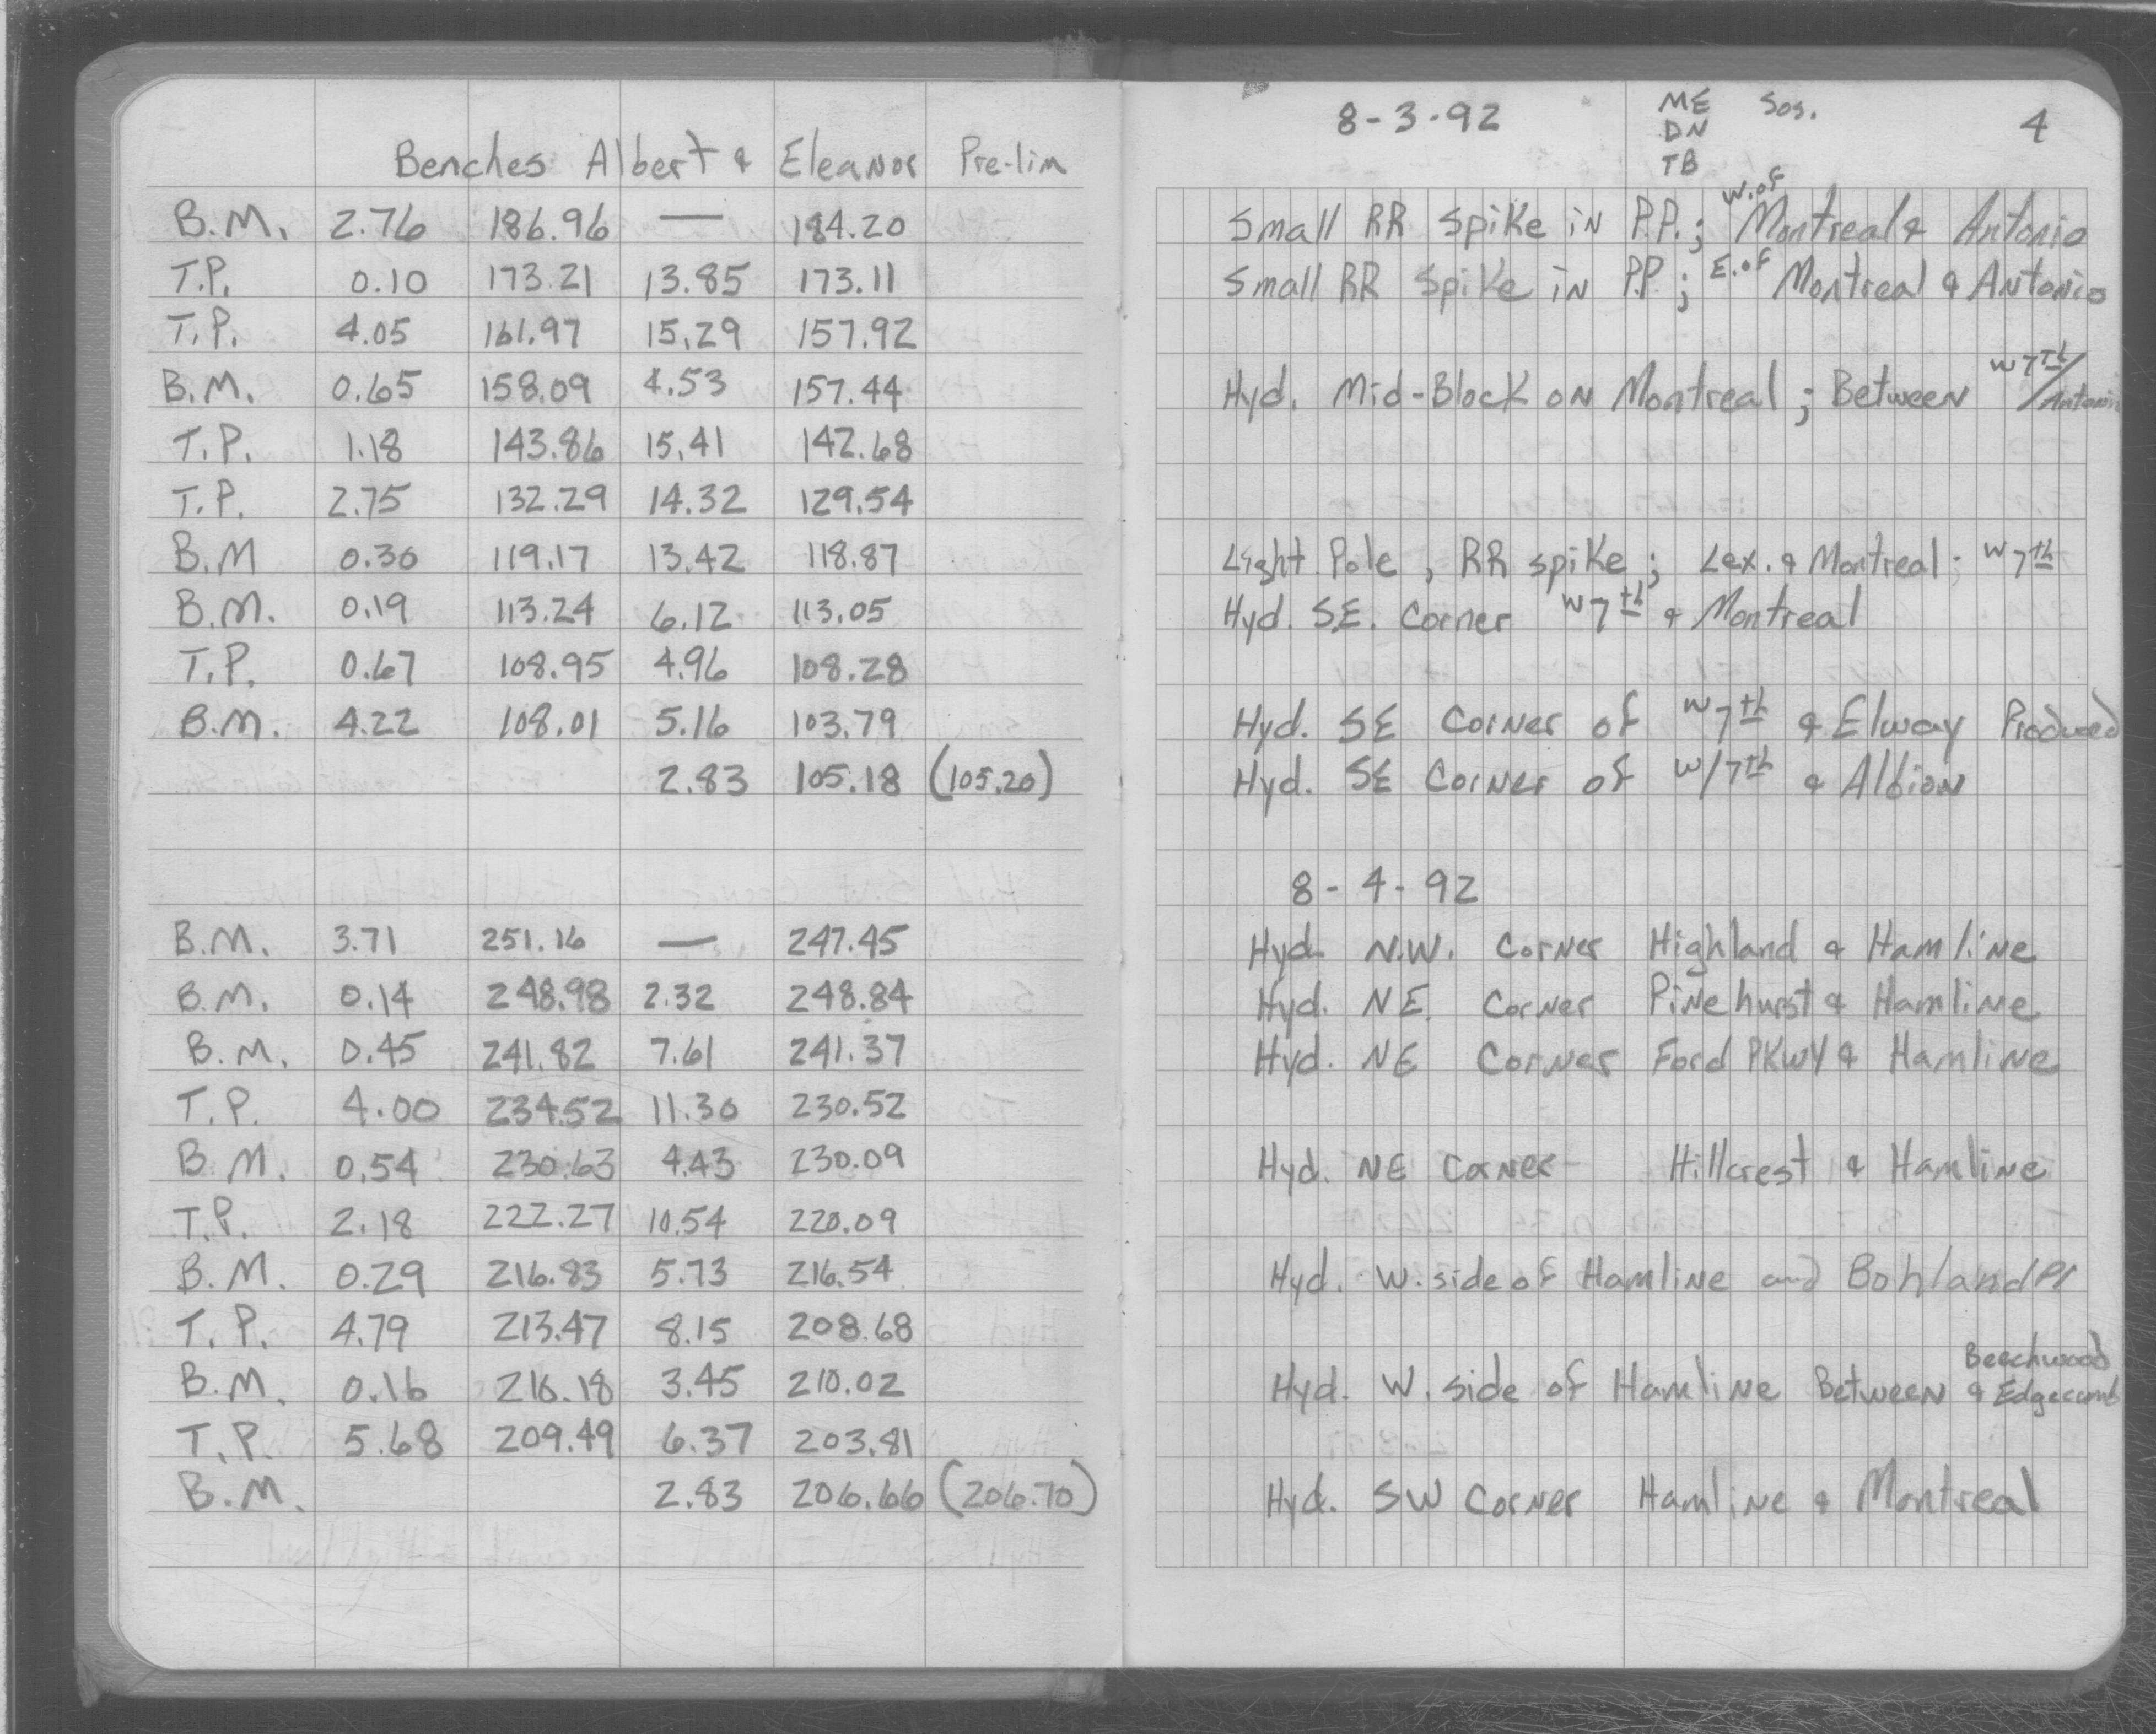 Benches Albert & Eleanor Pre-lim
B.M. 2.76 186.96 — 184.20
T.P. 0.10 173.21 13.85 173.11
T.P. 4.05 161.97 15.29 157.92
B.M. 0.65 158.09 4.53 157.44
T.P. 1.18 143.86 15.41 142.68
T.P. 2.75 132.29 14.32 129.54
B.M 0.30 119.17 13.42 118.87
B.M. 0.19 113.24 6.12 113.05
T.P. 0.67 108.95 4.96 108.28
B.M. 4.22 108.01 5.16 103.79
2.83 105.18 (105.20)
B.M. 3.71 251.16 — 247.45
B.M. 0.14 248.98 2.32 248.84
B.M. 0.45 241.82 7.61 241.37
T.P. 4.00 234.52 11.30 230.52
B.M. 0.54 230.63 4.43 230.09
T.P. 2.18 222.27 10.54 220.09
B.M. 0.29 216.83 5.73 216.54
T.P. 4.79 213.47 8.15 208.68
B.M. 0.16 210.18 3.45 210.02
T.P. 5.68 209.49 6.37 203.81
B.M. 2.83 206.66 (206.70)
8-3-92 ME Sos. 4
DN
TB
Small RR Spike in P.P.; W. of Montreal & Antonio
Small RR Spike in P.P; E. of Montreal & Antonio
Hyd. Mid-Block on Montreal; Between W 7th/Antonio
Light Pole, RR spike; Lex. & Montreal - W 7th
Hyd. S.E. Corner W 7th & Montreal
Hyd. SE Corner of W 7th & Elway Produced
Hyd. SE Corner of W/7th & Albion
8-4-92
Hyd. N.W. Corner Highland & Hamline
Hyd. NE. Corner Pinehurst & Hamline
Hyd. NE Corner Ford PKWY & Hamline
Hyd. NE Corner Hillcrest & Hamline
Hyd. W. side of Hamline and Bohland Pl
Hyd. W. side of Hamline Between Beechwood & Edgecumb
Hyd. SW Corner Hamline & Montreal